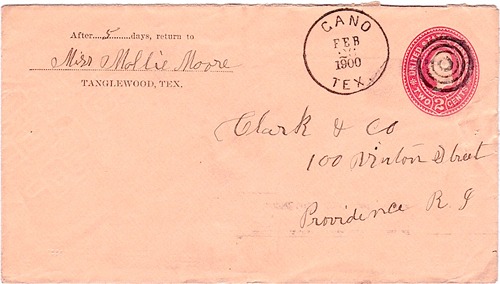 After 5 days, return to
Miss Mollie Moore
TANGLEWOOD, TEX.
CANO
FEB
1900
TEX.
UNITED STATES
TWO 2 CENTS
Clark & Co
100 Winton Street
Providence R I